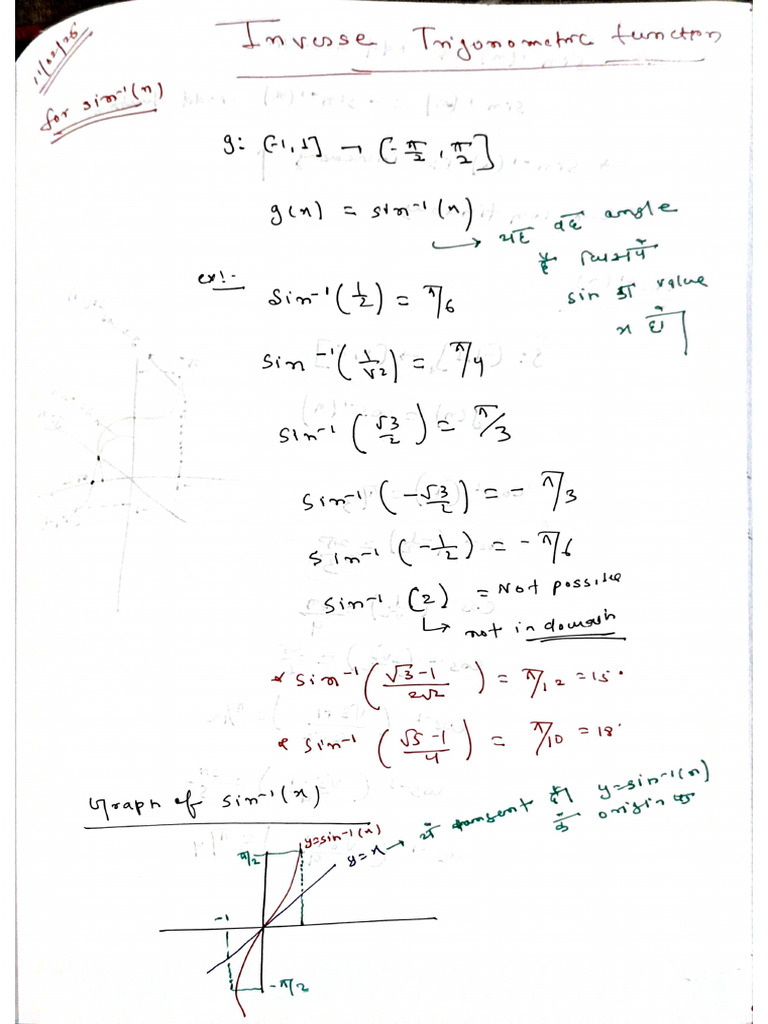 11/02/25
Inverse Trigonometric function
for sin⁻¹(x)
g: [-1, 1] → [-π/2, π/2]
g(x) = sin⁻¹(x)
→ यह वह angle
है जिसमें
sin का value
x हो
ex:-
sin⁻¹(1/2) = π/6
sin⁻¹(1/√2) = π/4
sin⁻¹(√3/2) = π/3
sin⁻¹(-√3/2) = -π/3
sin⁻¹(-1/2) = -π/6
sin⁻¹(2) = Not possible
↳ not in domain
* sin⁻¹((√3-1)/2√2) = π/12 = 15°
* sin⁻¹((√5-1)/4) = π/10 = 18°
Graph of sin⁻¹(x)
y=sin⁻¹(x)
π/2
y=x → ये tangent है y=sin⁻¹(x)
के origin पर
-1
-π/2